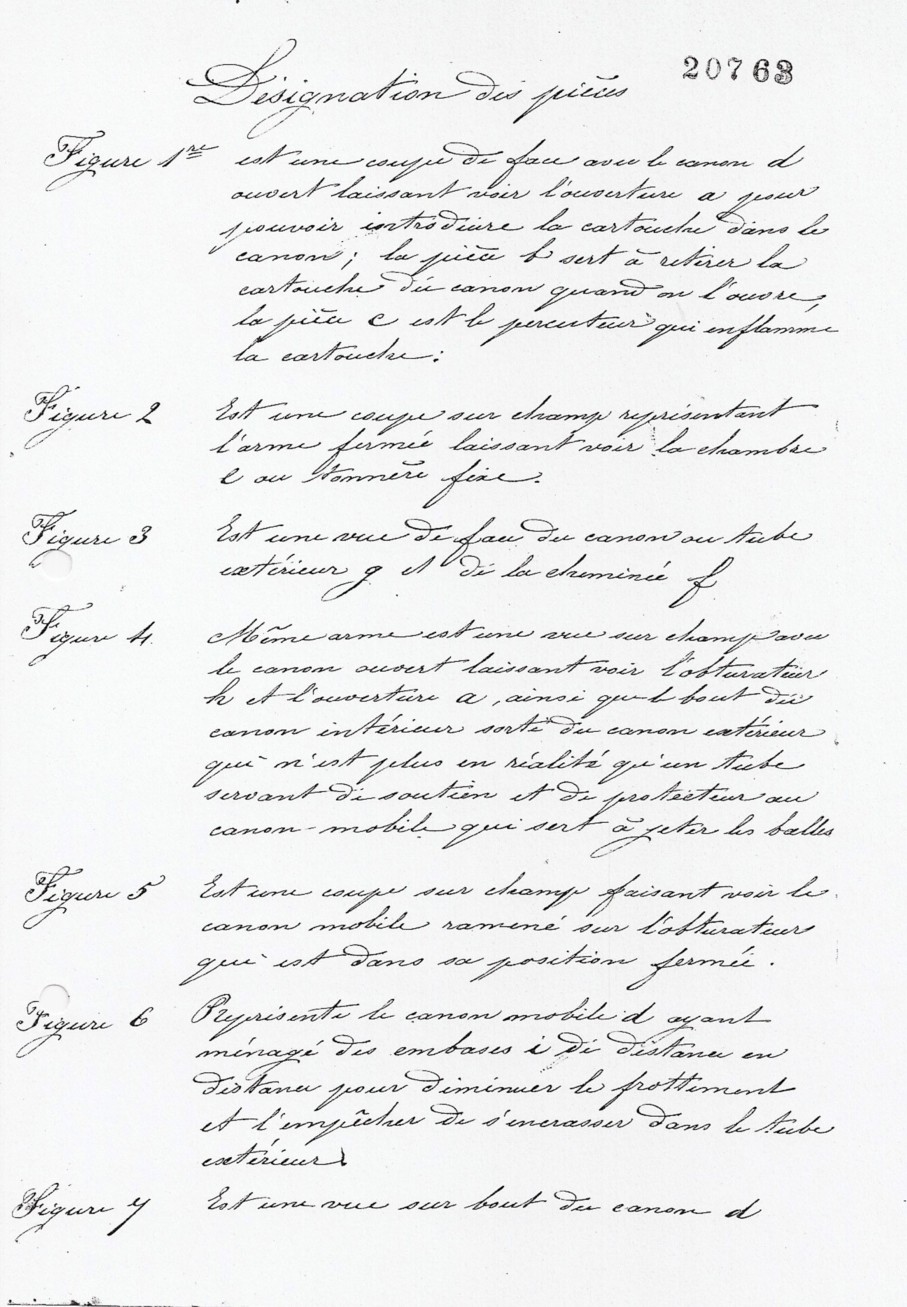 20763
Désignation des pièces
Figure 1re est une coupe de face avec le canon d
ouvert laissant voir l'ouverture a pour
pouvoir introduire la cartouche dans le
canon; la pièce b sert à retirer la
cartouche du canon quand on l'ouvre,
la pièce c est le percuteur qui enflamme
la cartouche:
Figure 2 Est une coupe sur champ représentant
l'arme fermée laissant voir la chambre
e ou tonnerre fixe.
Figure 3 Est une vue de face du canon ou tube
extérieur g et de la cheminée f
Figure 4. Même arme est une vue sur champ avec
le canon ouvert laissant voir l'obturateur
h et l'ouverture a, ainsi que le bout du
canon intérieur sorti du canon extérieur
qui n'est plus en réalité qu'un tube
servant de soutien et de protecteur au
canon-mobile qui sert à jeter les balles
Figure 5 Est une coupe sur champ faisant voir le
canon mobile ramené sur l'obturateur
qui est dans sa position fermée.
Figure 6 Représente le canon mobile d ayant
ménagé des embases i de distance en
distance pour diminuer le frottement
et l'empêcher de s'encrasser dans le tube
extérieur
Figure 7 Est une vue sur bout du canon d